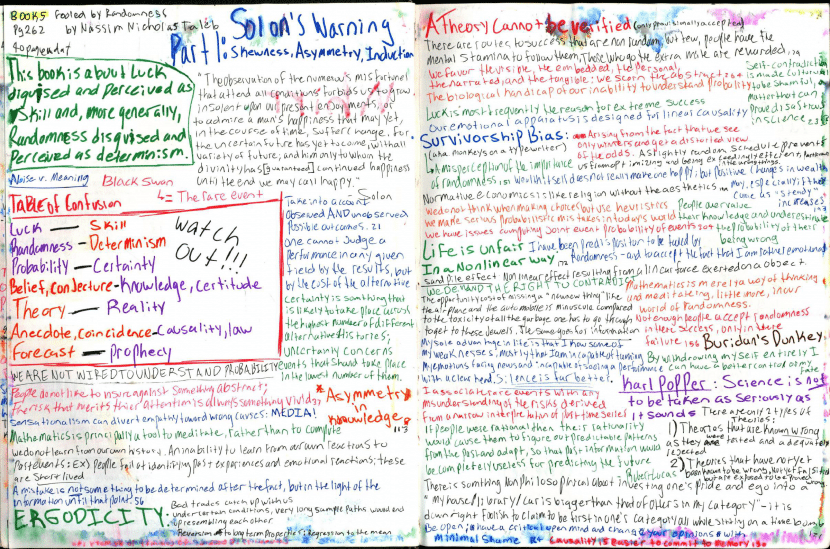 BOOKS Fooled by Randomness
Pg 262 by Nassim Nicholas Taleb
Solon's Warning
Part I: Skewness, Asymmetry, Induction
This book is about Luck
disguised and perceived as
Skill and, more generally,
Randomness disguised and
Perceived as determinism.
"The observation of the numerous misfortunes
that attend all conditions forbids us to grow
insolent upon our present enjoyments, or
to admire a man's happiness that may yet,
in the course of time, suffer change. For
the uncertain future has yet to come, with all
variety of future; and him only to whom the
divinity has [guaranteed] continued happiness
until the end we may call happy."
Solon
Noise v. Meaning Black Swan
↳ The rare event
TABLE of Confusion
Luck — Skill
Randomness - Determinism
Probability — Certainty
Belief, conjecture - Knowledge, Certitude
Theory — Reality
Anecdote, coincidence - Causality, law
Forecast — Prophecy
WATCH
OUT!!!
Take into account
observed AND unobserved
possible outcomes. 21
one cannot judge a
performance in any given
field by the results, but
by the cost of the alternative
certainty is something that
is likely to take place across
the highest number of different
alternative histories;
uncertainty concerns
events that should take place
in the lowest number of them.
WE ARE NOT WIRED TO UNDERSTAND PROBABILITY
People do not like to insure against something abstract;
the risk that merits their attention is always something vivid 37
Sensationalism can divert empathy toward wrong causes: MEDIA!
*Asymmetry
in
Knowledge*
Mathematics is principally a tool to meditate, rather than to compute
we do not learn from our own history. An inability to learn from our own reactions to
past events: Ex) people fail at identifying past experiences and emotional reactions; these
are short lived
A mistake is not something to be determined after the fact, but in the light of the
information until that point. 56
ERGODICITY:
Bad trades catch up with us
under certain conditions, very long sample paths wound end
up resembling each other
Reversion to long term properties; regression to the mean
A Theory Cannot be verified (only provisionally accepted)
There are routes to success that are non random, but few, people have the
mental stamina to follow them. Those who go the extra mile are rewarded.
We favor the visible, the embedded, the personal,
the narrated, and the tangible; we scorn the abstract
The biological handicap of our inability to understand probability
Self-contradiction
is made cultural
to be shameful
matter that can
prove disastrous
in science
Luck is most frequently the reason for extreme success
Our emotional apparatus is designed for lineal causality
Survivorship Bias:
(aka monkeys on a typewriter)
Arising from the fact that we see
only winners and get a distorted view
of the odds. A slightly random schedule prevents
us from optimizing and being exceedingly efficient
↳ misperception of the importance
of randomness, 151 Wealth itself does not really make one happy; but positive changes in wealth
may, especially if they
come as "steady"
increases
Normative economics: like religion without the aesthetics
we don't think when making choices but use heuristics
We make serious probabilistic mistakes in today's world
we have issues computing Joint event probability of events
People overvalue
their knowledge and underestimate
the probability of their
being wrong
Life is unfair
In a Nonlinear way
I have been predisposition to be fooled by
Randomness - and to accept the fact that I am rather emotional
sand pile effect Nonlinear effect resulting from a linear force exerted on an object.
WE DEMAND THE RIGHT TO CONTRADICT
The opportunity cost of missing a "new new thing" like
the air plane and the automobile is minuscule compared
to the toxicity of all the garbage one has to go through
to get to these Jewels. The same goes for information
Mathematics is merely a way of thinking
and meditating, little more, in our
world of Randomness.
not enough people accept randomness
in their success, only in their
failure 156
Buridan's Donkey
My sole advantage in life is that I know some of
my weaknesses, mostly that I am incapable of taming
my emotions facing news and incapable of seeing a performance
with a clear head. Silence is far better.
By withdrawing myself entirely I
can have a better control of my
fate
Rare social: rare events with any
misunderstanding of the risks derived
from a narrow interpretation of past time Series
If people were rational then their rationality
would cause them to figure out predictable patterns
from the past and adapt, so that past information would
be completely useless for predicting the future
Karl Popper: Science is not
to be taken as seriously as
it sounds
There are only 2 types of
Theories:
1) Theories that are known wrong
as they were tested and adequately
rejected
2) Theories that have not yet
been known to be wrong, not yet falsified
but are exposed to be proved
wrong
There is something Non philosophical about investing one's pride and ego into a
"my house/library/car is bigger than that of others in my category" - it is
downright foolish to claim to be first in one's category all while sitting on a time bomb
Be open; have a critical open mind and change your opinions with
minimal Shame
Causality is Easier to commit to Memory